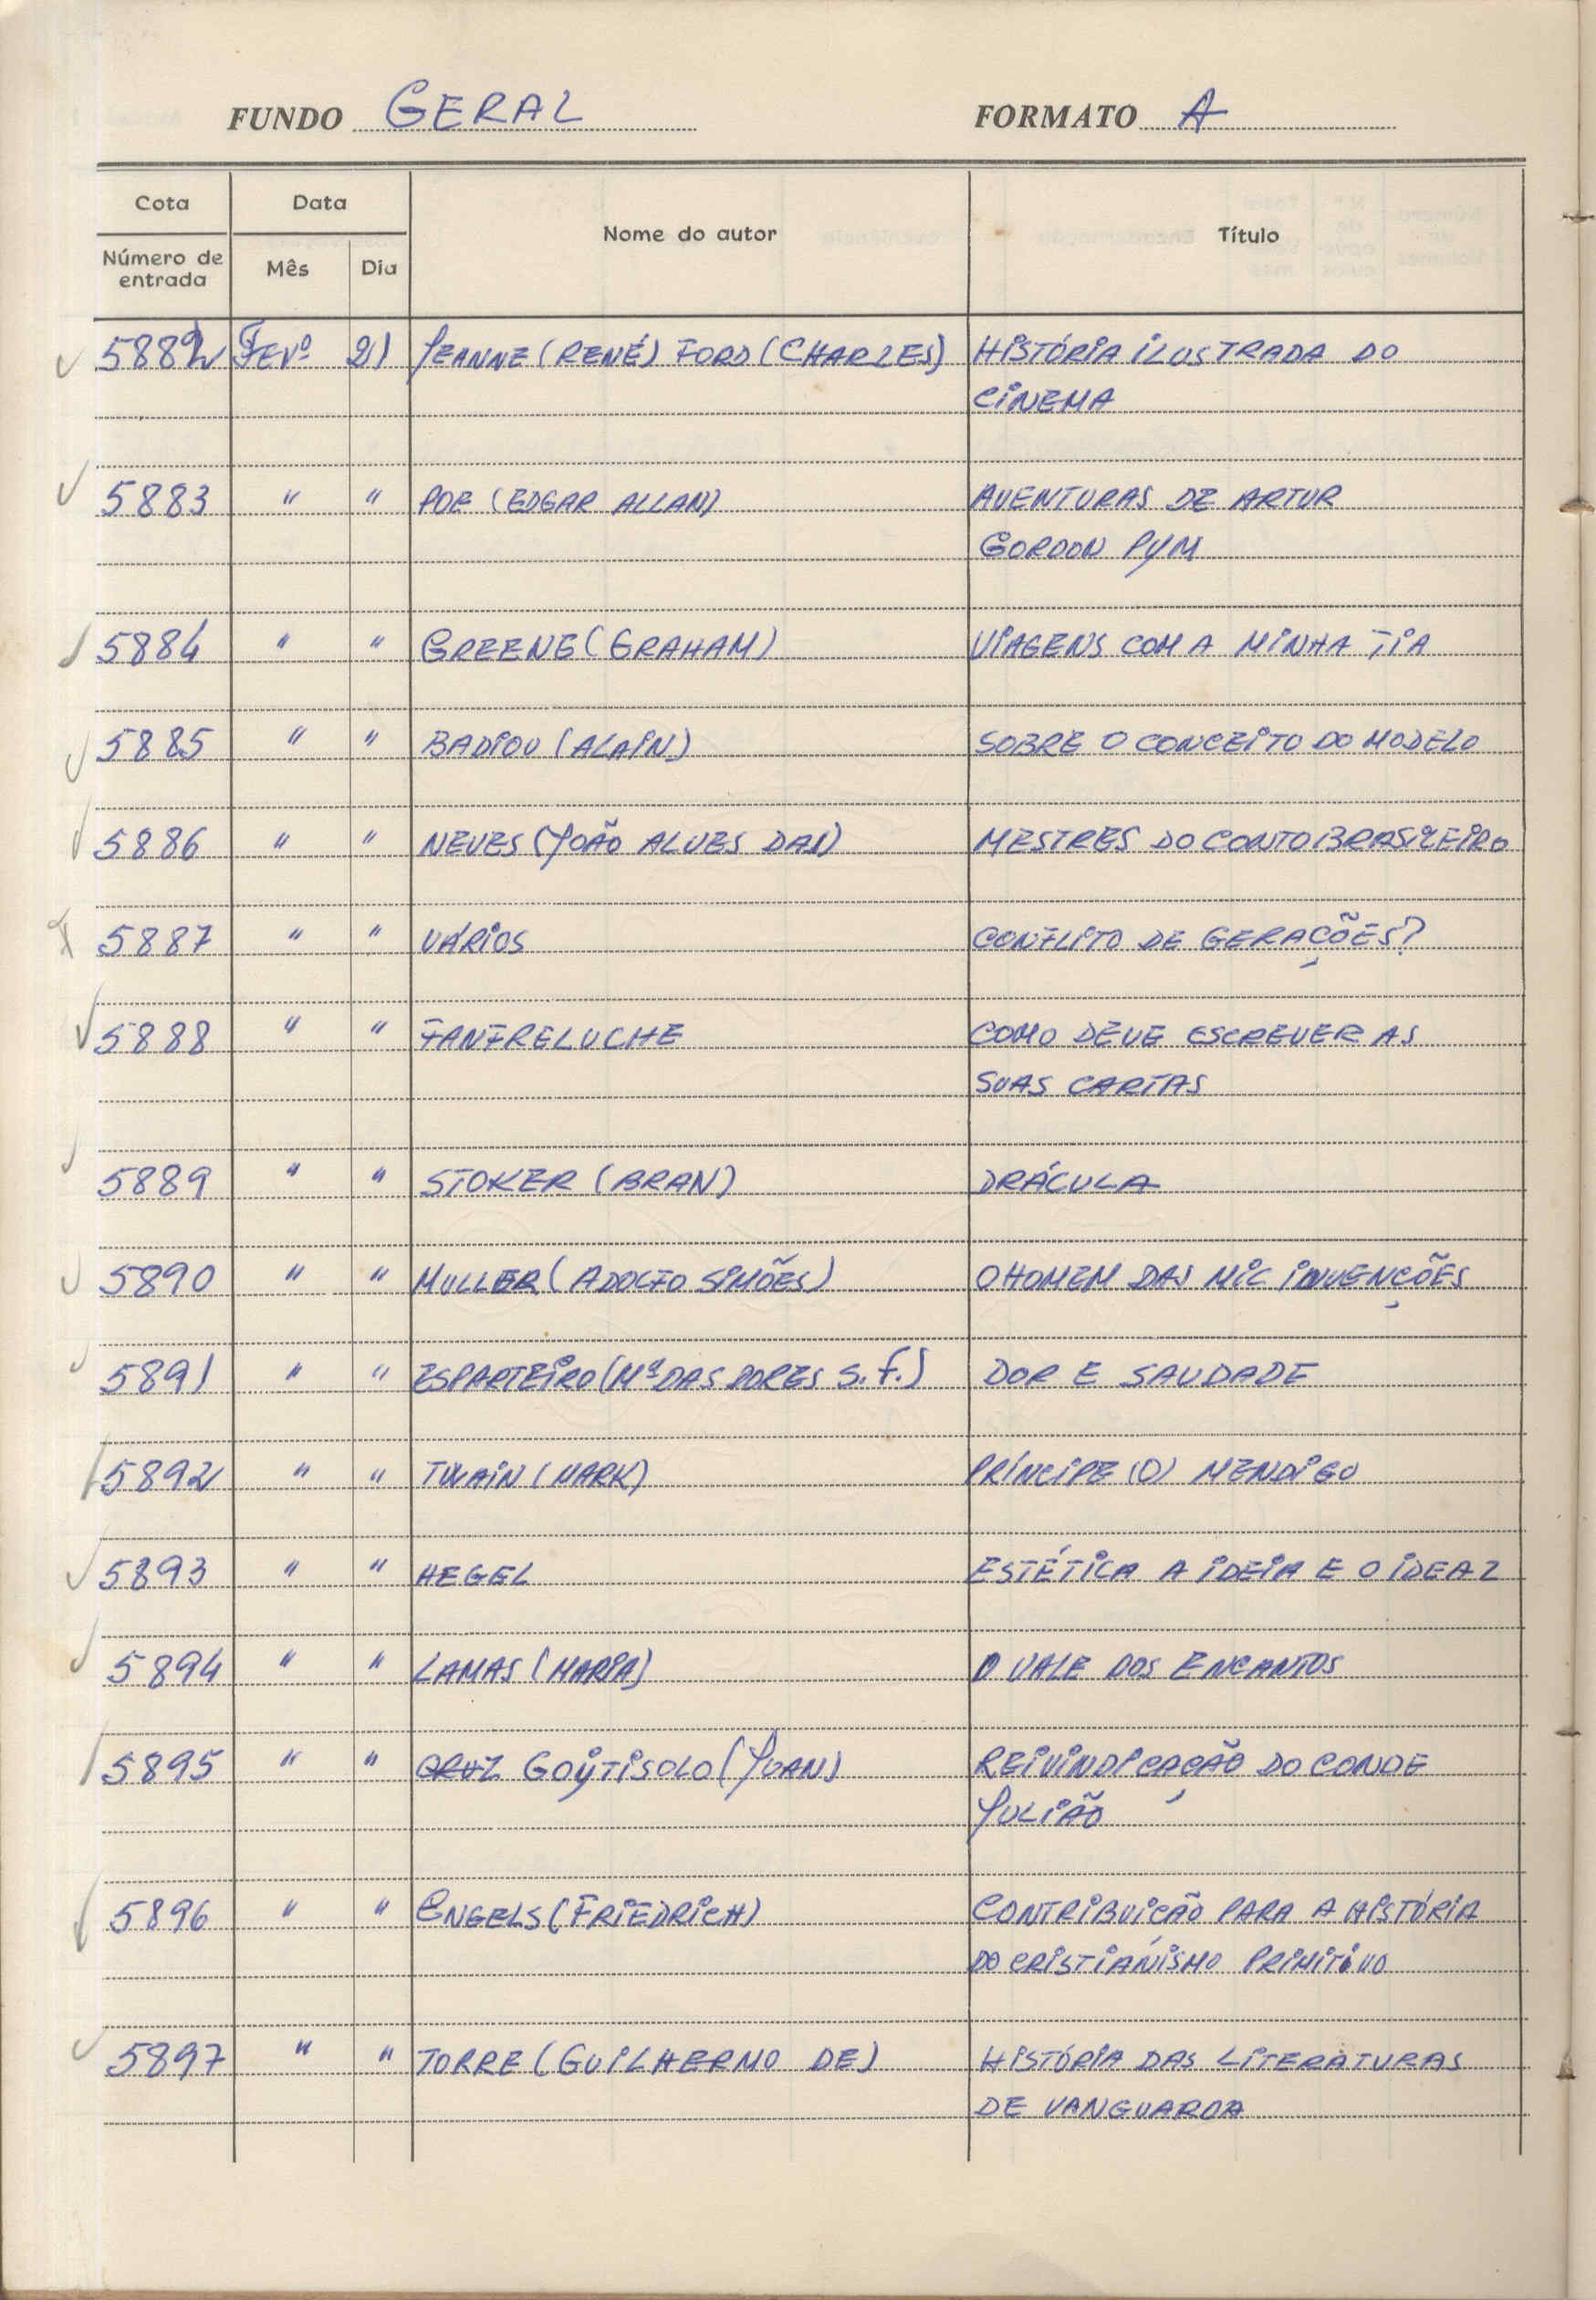 FUNDO GERAL FORMATO A
Cota Data Nome do autor Título
Número de entrada Mês Dia
5882 Fevº 21 JEANNE (RENÉ) FORD (CHARLES) HISTÓRIA ILUSTRADA DO
CINEMA
5883 " " POE (EDGAR ALLAN) AVENTURAS DE ARTUR
GORDON PYM
5884 " " GREENE (GRAHAM) VIAGENS COM A MINHA TIA
5885 " " BADIOU (ALAIN) SOBRE O CONCEITO DO MODELO
5886 " " NEVES (JOÃO ALVES DAS) MESTRES DO CONTO BRASILEIRO
5887 " " VÁRIOS CONFLITO DE GERAÇÕES?
5888 " " FANFRELUCHE COMO DEVE ESCREVER AS
SUAS CARTAS
5889 " " STOKER (BRAN) DRÁCULA
5890 " " MULLER (ADOLFO SIMÕES) O HOMEM DAS MIL INVENÇÕES
5891 " " ESPARTEIRO (Mª DAS DORES S. F.) DOR E SAUDADE
5892 " " TWAIN (MARK) PRÍNCIPE (O) MENDIGO
5893 " " HEGEL ESTÉTICA A IDEIA E O IDEAL
5894 " " LAMAS (MARIA) O VALE DOS ENCANTOS
5895 " " CRUZ GOYTISOLO (JUAN) REIVINDICAÇÃO DO CONDE
JULIÃO
5896 " " ENGELS (FRIEDRICH) CONTRIBUIÇÃO PARA A HISTÓRIA
DO CRISTIANISMO PRIMITIVO
5897 " " TORRE (GUILHERMO DE) HISTÓRIA DAS LITERATURAS
DE VANGUARDA